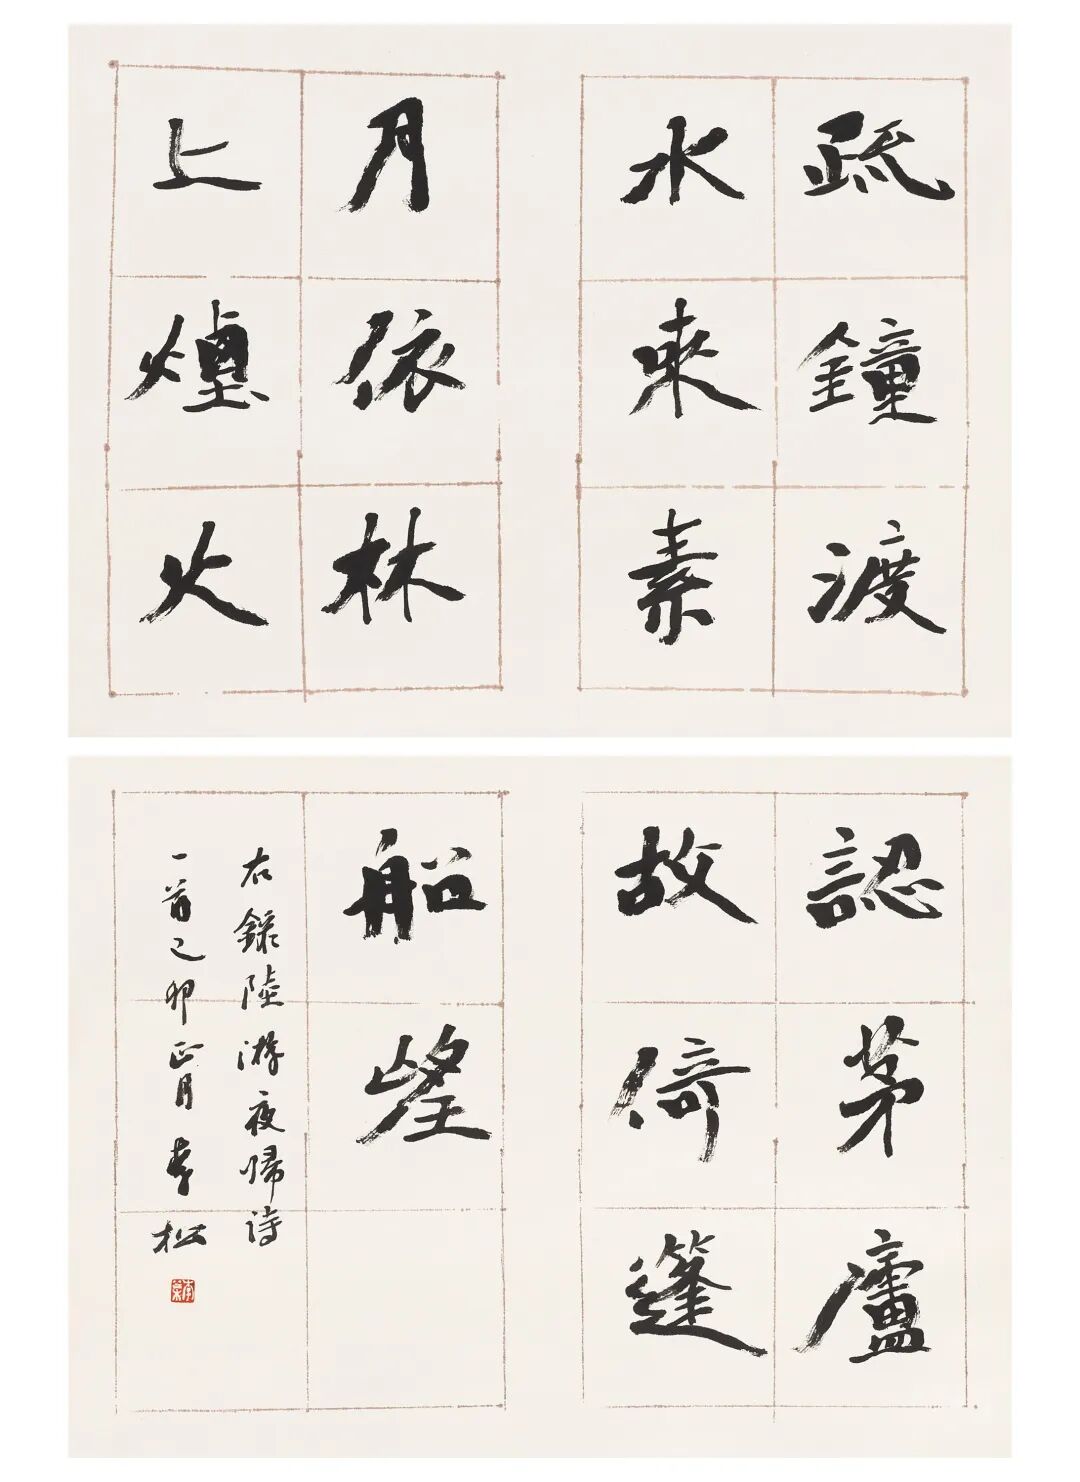 疏鐘渡
水來素
月依林
上煙火
認茅廬
故倚篷
船望
右録陸游夜歸詩
一首己卯正月李松